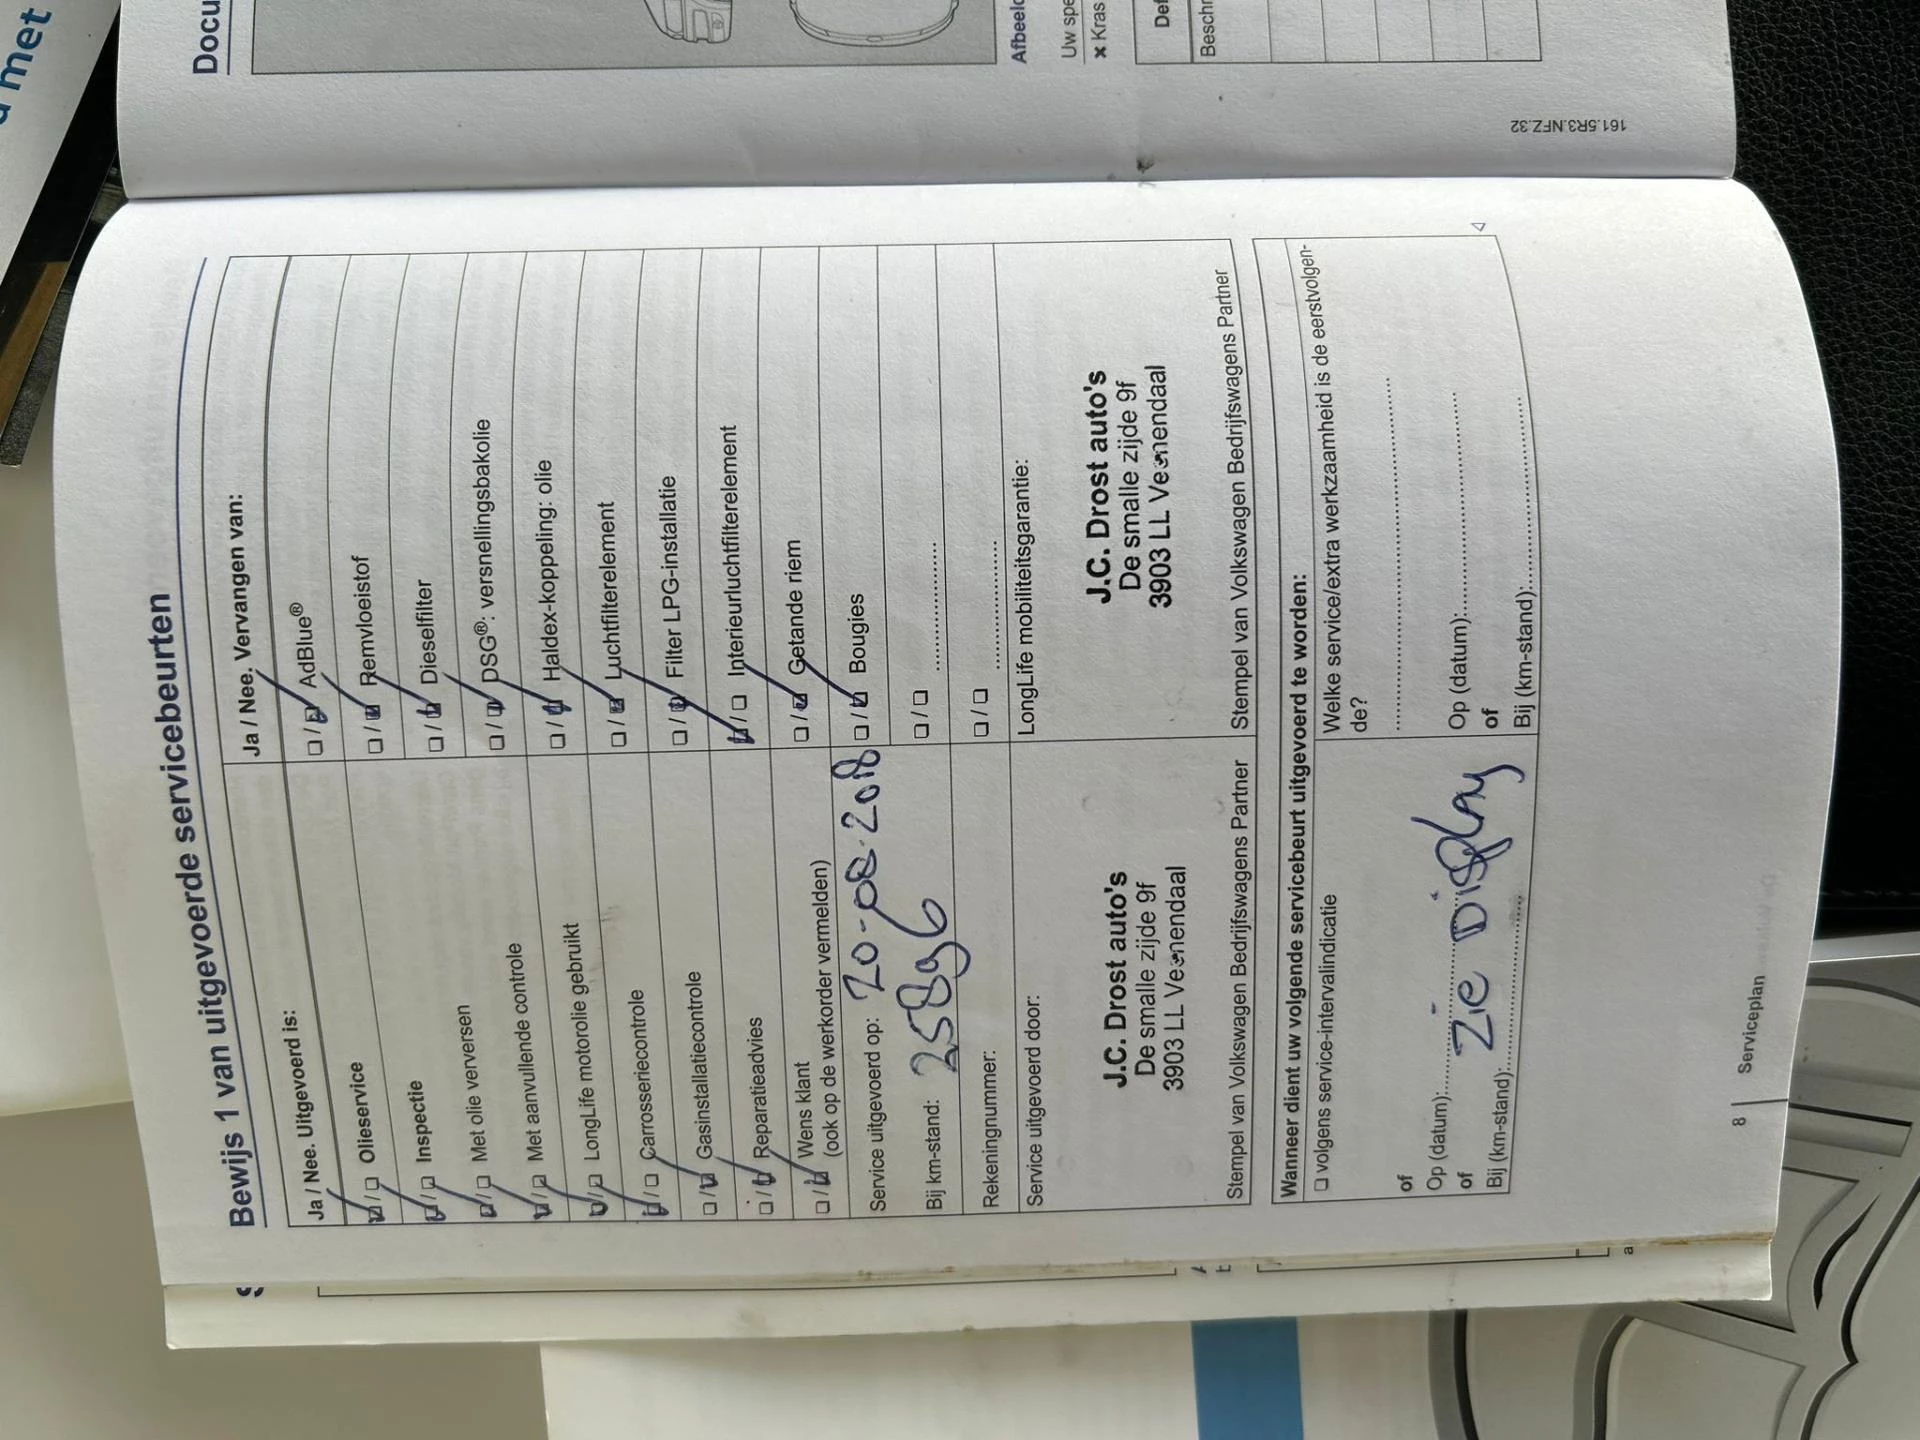 u met
Docu
Afbeeld
Uw spe
x Kras
Def
Beschr
161.5R3.NFZ.32
Bewijs 1 van uitgevoerde servicebeurten
Ja / Nee. Uitgevoerd is:
☑/☐ Olieservice
☑/☐ Inspectie
☑/☐ Met olie verversen
☑/☐ Met aanvullende controle
☑/☐ LongLife motorolie gebruikt
☑/☐ Carrosseriecontrole
☐/☑ Gasinstallatiecontrole
☐/☑ Reparatieadvies
☐/☑ Wens klant
(ook op de werkorder vermelden)
Service uitgevoerd op: 20-08-2018
Bij km-stand: 25896
Rekeningnummer:
Service uitgevoerd door:
J.C. Drost auto's
De smalle zijde 9f
3903 LL Veenendaal
Stempel van Volkswagen Bedrijfswagens Partner
Ja / Nee. Vervangen van:
☐/☑ AdBlue®
☐/☑ Remvloeistof
☐/☑ Dieselfilter
☐/☑ DSG®: versnellingsbakolie
☐/☑ Haldex-koppeling: olie
☐/☑ Luchtfilterelement
☐/☑ Filter LPG-installatie
☑/☐ Interieurluchtfilterelement
☐/☑ Getande riem
☐/☑ Bougies
☐/☐ ....................
☐/☐ ....................
LongLife mobiliteitsgarantie:
J.C. Drost auto's
De smalle zijde 9f
3903 LL Veenendaal
Stempel van Volkswagen Bedrijfswagens Partner
Wanneer dient uw volgende servicebeurt uitgevoerd te worden:
☐ volgens service-intervalindicatie
of
Op (datum):....................
of
Zie Display
Bij (km-stand):....................
Welke service/extra werkzaamheid is de eerstvolgen-
de?
........................................
Op (datum):....................
of
Bij (km-stand):....................
8 | Serviceplan